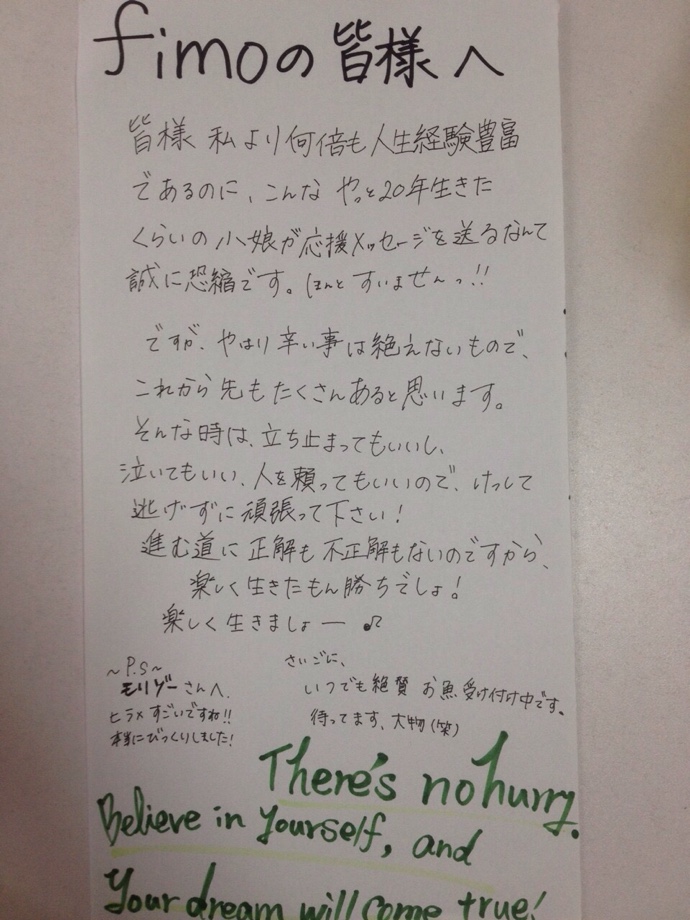 fimoの皆様へ
皆様 私より何倍も人生経験豊富
であるのに、こんな やっと20年生きた
くらいの小娘が応援メッセージを送るなんて
誠に恐縮です。ほんと すいませんっ!!
ですが、やはり辛い事は絶えないもので、
これから先もたくさんあると思います。
そんな時は、立ち止まってもいいし、
泣いてもいい、人を頼ってもいいので、けっして
逃げずに頑張って下さい!
進む道に正解も不正解もないのですから、
楽しく生きたもん勝ちでしょ!
楽しく生きましょー♪
~P.S~
モリゾーさんへ
ヒラメすごいですね!!
本当にびっくりしました!
さいごに、
いつでも絶賛 お魚受け付け中です。
待ってます、大物(笑)
There's no hurry.
Believe in yourself, and
Your dream will come true!